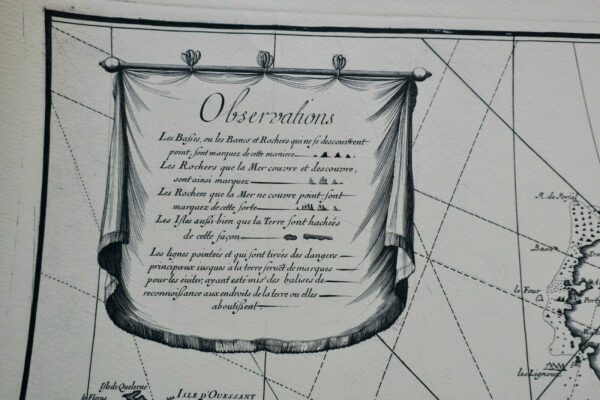 Observations
Les Basses, ou les Bancs et Rochers qui ne se descouvrent
point, sont marquez de cette maniere
Les Rochers que la Mer couvre et descouvre,
sont ainsi marquez
Les Rochers que la Mer ne couvre point, sont
marquez de cette sorte
Les Isles aussi bien que la Terre sont hachées
de cette façon
Les lignes pointées et qui sont tirées des dangers
principaux iusques a la terre servt de marques
pour les éuiter, ayant esté mis des balises de
reconnoissance aux endroits de la terre ou elles
aboutissent
Basse
le Four
les Lignoux
Isle de Quelerne
ISLE D'OUESSANT